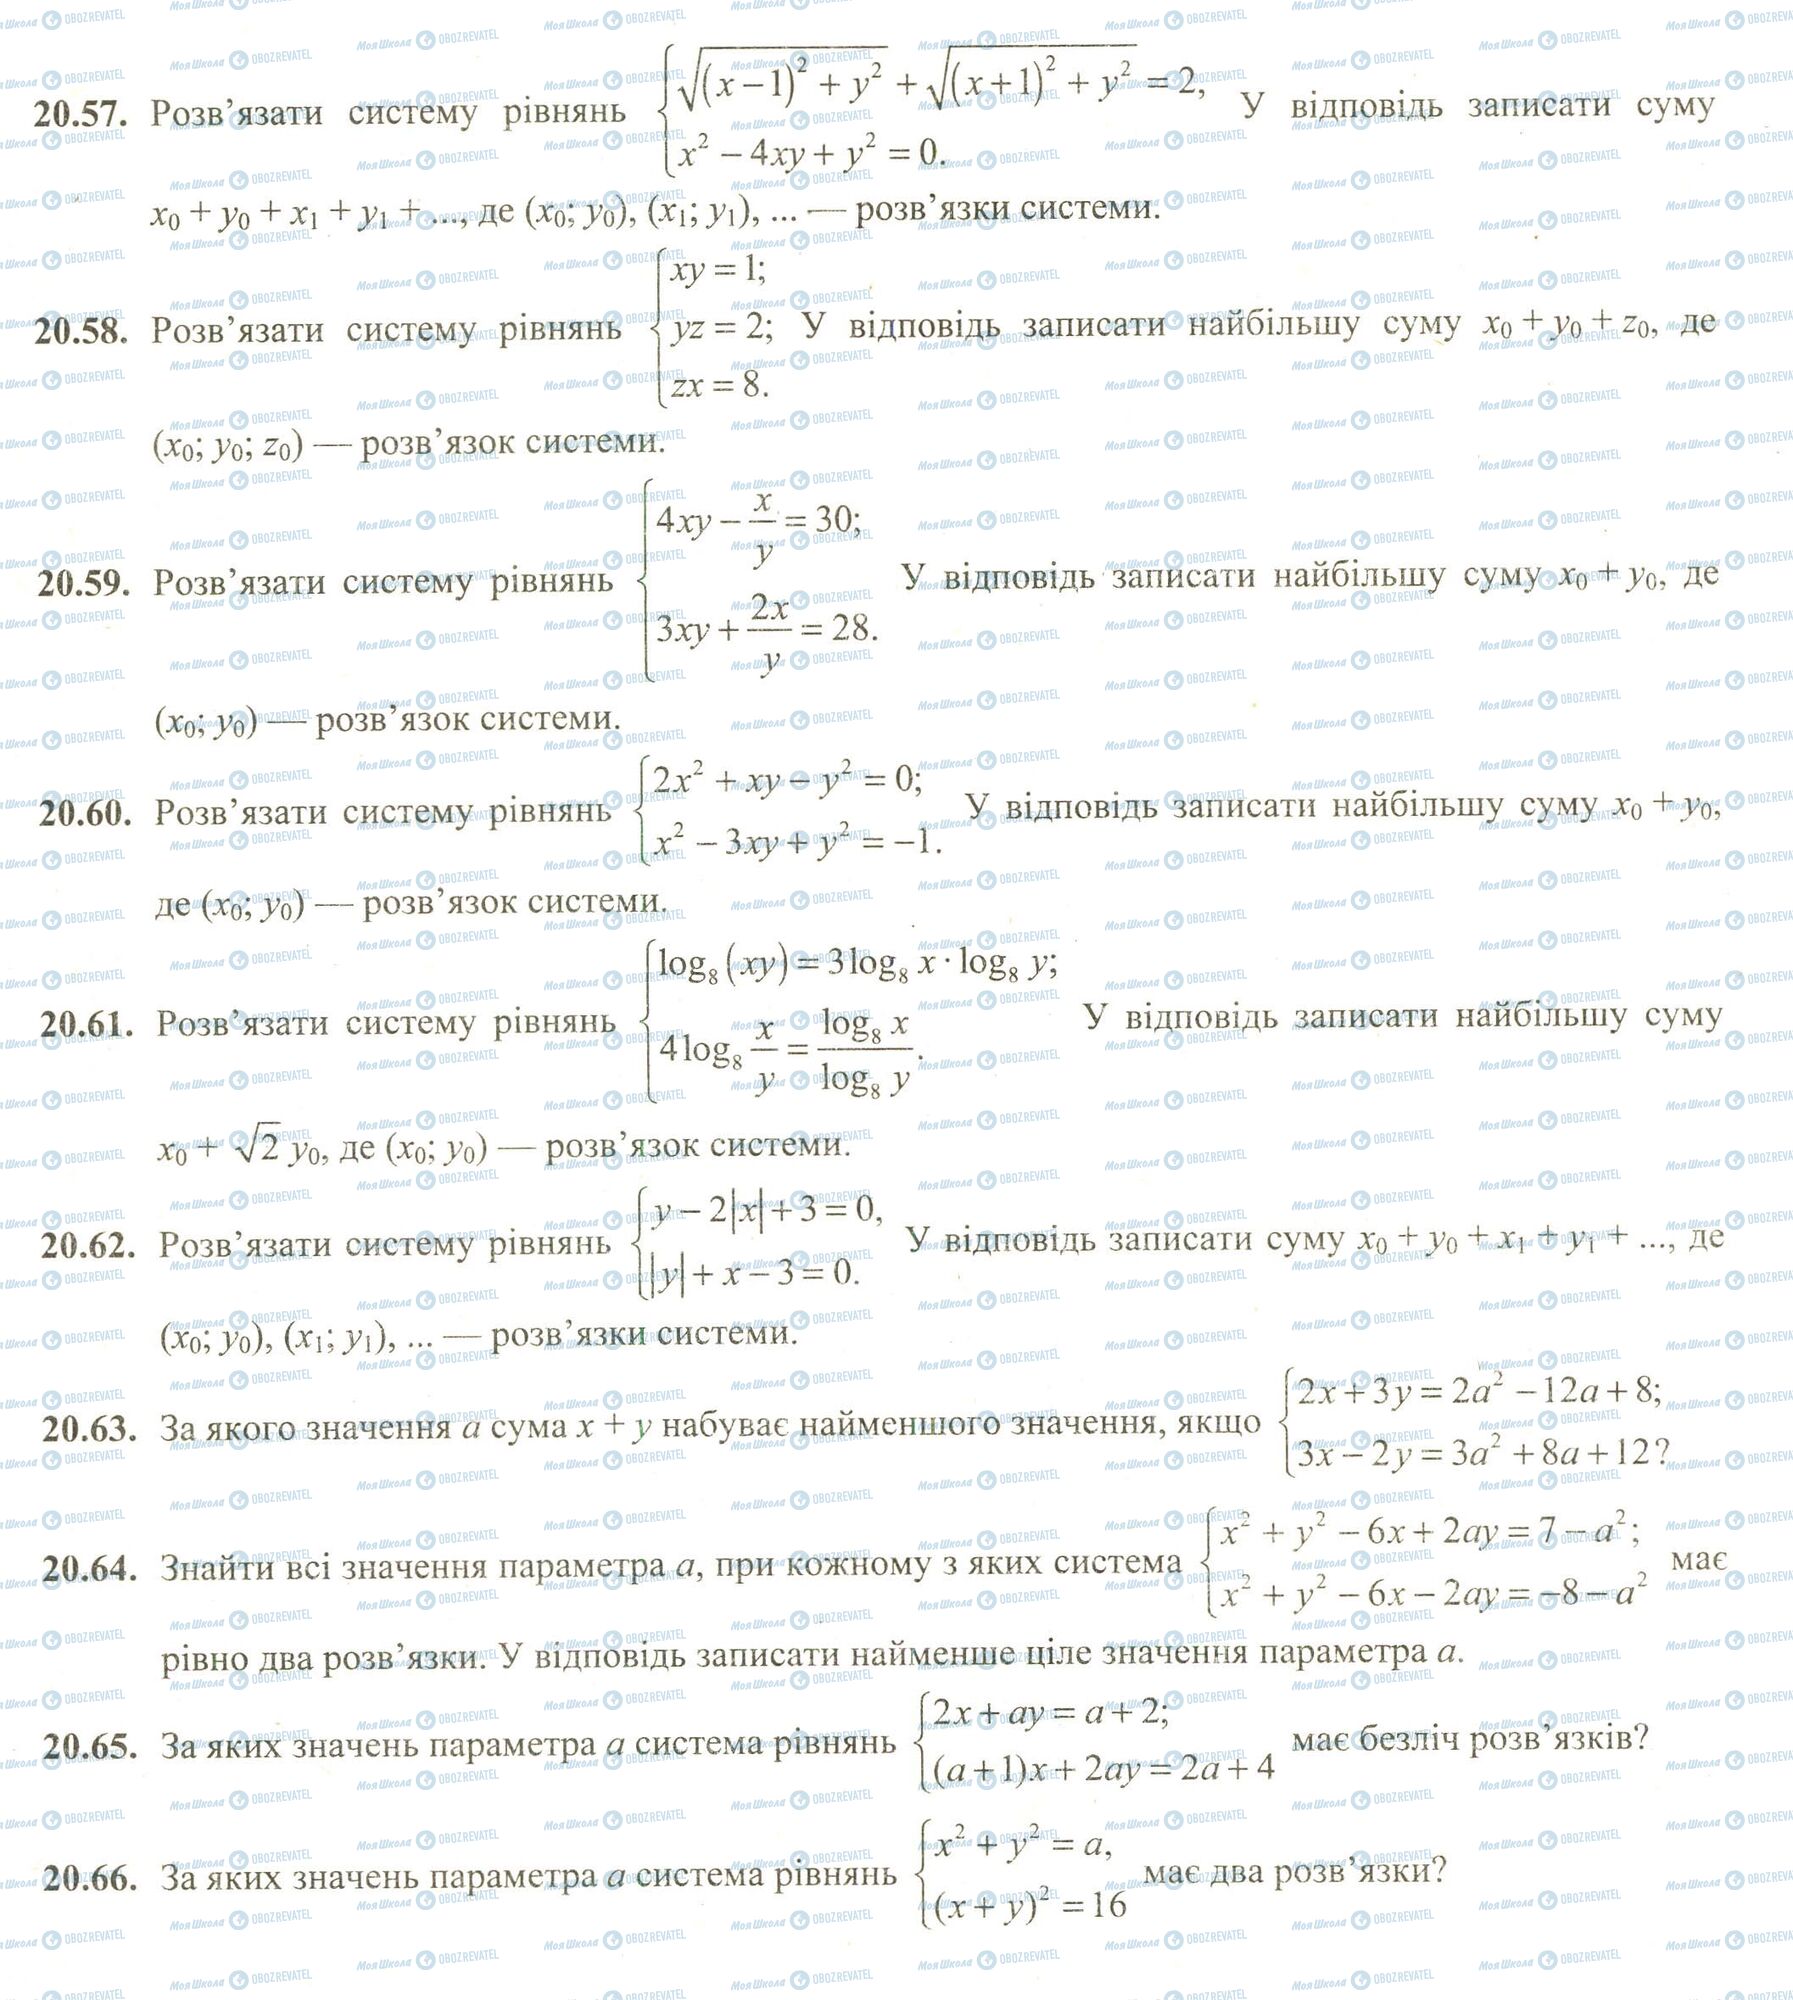 20.57. Розв’язати систему рівнянь { √((x−1)² + y²) + √((x+1)² + y²) = 2, x² − 4xy + y² = 0. У відповідь записати суму
x₀ + y₀ + x₁ + y₁ + ..., де (x₀; y₀), (x₁; y₁), ... — розв’язки системи.
20.58. Розв’язати систему рівнянь { xy = 1; yz = 2; zx = 8. У відповідь записати найбільшу суму x₀ + y₀ + z₀, де
(x₀; y₀; z₀) — розв’язок системи.
20.59. Розв’язати систему рівнянь { 4xy − x/y = 30; 3xy + 2x/y = 28. У відповідь записати найбільшу суму x₀ + y₀, де
(x₀; y₀) — розв’язок системи.
20.60. Розв’язати систему рівнянь { 2x² + xy − y² = 0; x² − 3xy + y² = −1. У відповідь записати найбільшу суму x₀ + y₀,
де (x₀; y₀) — розв’язок системи.
20.61. Розв’язати систему рівнянь { log₈ (xy) = 3 log₈ x · log₈ y; 4 log₈ x/y = log₈ x / log₈ y. У відповідь записати найбільшу суму
x₀ + √2 y₀, де (x₀; y₀) — розв’язок системи.
20.62. Розв’язати систему рівнянь { y − 2|x| + 3 = 0, |y| + x − 3 = 0. У відповідь записати суму x₀ + y₀ + x₁ + y₁ + ..., де
(x₀; y₀), (x₁; y₁), ... — розв’язки системи.
20.63. За якого значення a сума x + y набуває найменшого значення, якщо { 2x + 3y = 2a² − 12a + 8; 3x − 2y = 3a² + 8a + 12?
20.64. Знайти всі значення параметра a, при кожному з яких система { x² + y² − 6x + 2ay = 7 − a²; x² + y² − 6x − 2ay = −8 − a² має
рівно два розв’язки. У відповідь записати найменше ціле значення параметра a.
20.65. За яких значень параметра a система рівнянь { 2x + ay = a + 2; (a + 1)x + 2ay = 2a + 4 має безліч розв’язків?
20.66. За яких значень параметра a система рівнянь { x² + y² = a, (x + y)² = 16 має два розв’язки?
МояШкола OBOZREVATEL